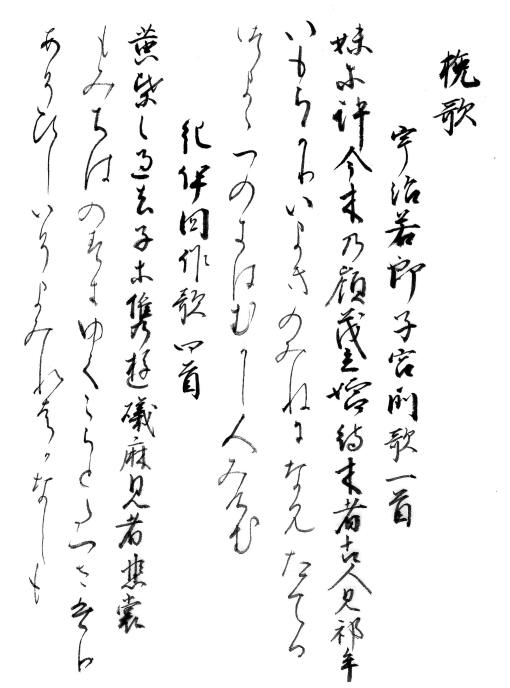 挽歌
宇治若郎子宮所歌一首
妹等許今木乃嶺茂立嬬待木者古人見祁牟
いもらかりいまきのみねになみたてる
つまゝつのきはむかし人みけむ
紀伊国作歌四首
黄葉之過去子等携遊礒麻見者悲裳
もみちはのすきにゆくこらとたつさはり
あそひしいそまみれはかなしも